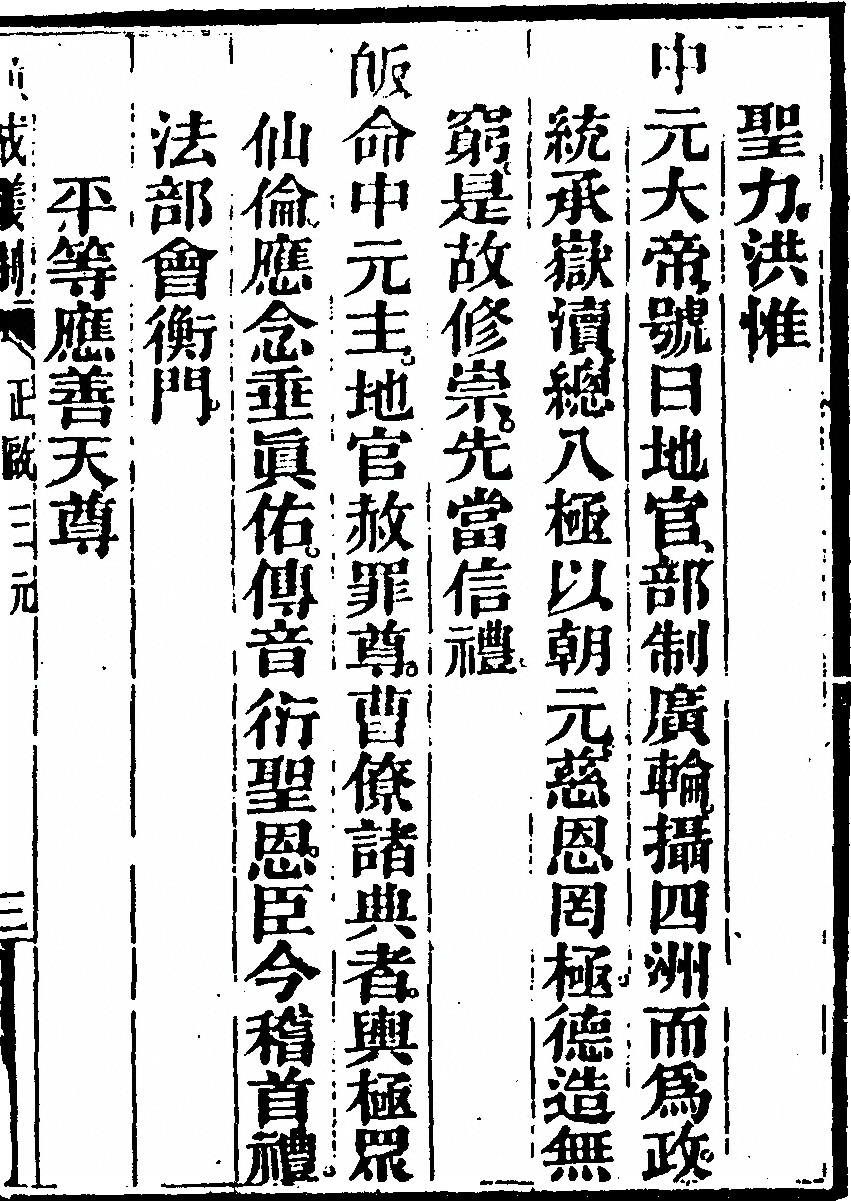 聖力。洪惟
中元大帝號曰地官。部制廣輪。攝四洲而爲政。
統承嶽瀆。總八極以朝元。慈恩罔極。德造無
窮。是故修崇。先當信禮。
皈命中元主。地官赦罪尊。曹僚諸典者。輿極眾
仙倫。應念垂眞佑。傳音衍聖恩。臣今稽首禮。
法部會衡門。
平等應善天尊
正啟三元 三